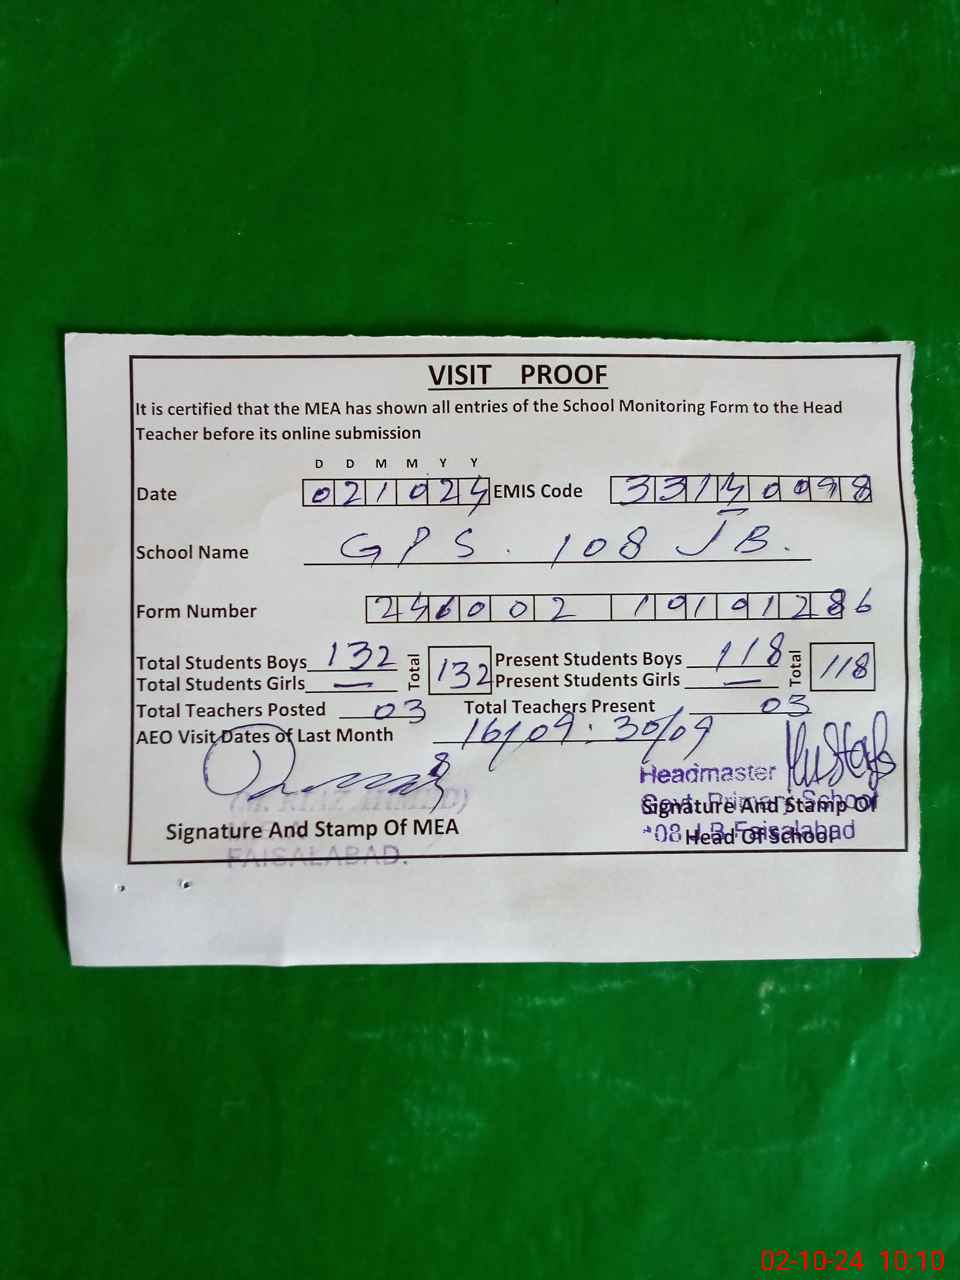 VISIT PROOF
It is certified that the MEA has shown all entries of the School Monitoring Form to the Head
Teacher before its online submission
D D M M Y Y
Date 021024 EMIS Code 33140098
School Name GPS. 108 JB.
Form Number 246002 19191286
Total Students Boys 132 Total 132 Present Students Boys 118 Total 118
Total Students Girls — Present Students Girls —
Total Teachers Posted 03 Total Teachers Present 03
AEO Visit Dates of Last Month 16/09 : 30/09
Headmaster
Govt. Primary School
108 J.B Faisalabad
Signature And Stamp Of MEA
FAISALABAD.
Signature And Stamp Of
Head Of School
02-10-24 10:10